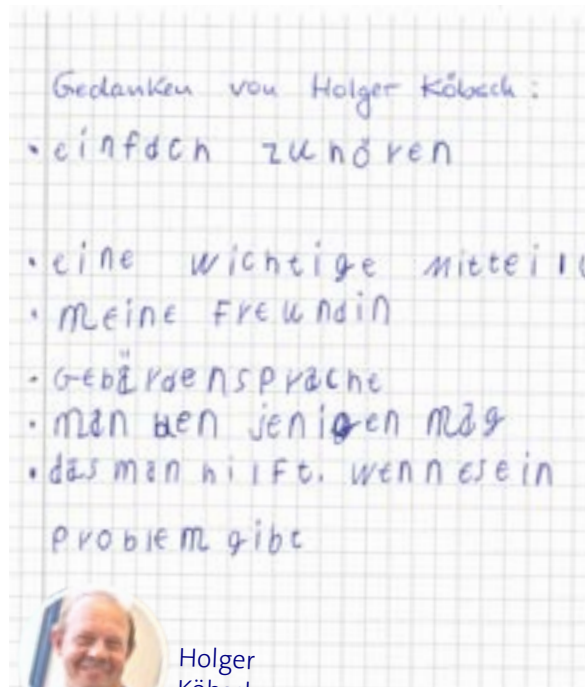 Gedanken von Holger Köbsch:
• einfach zuhören
• eine wichtige
• meine Freundin
• Gebärdensprache
• man den jenigen mag
• das man hilft. wenn es ein
problem gibt
Holger